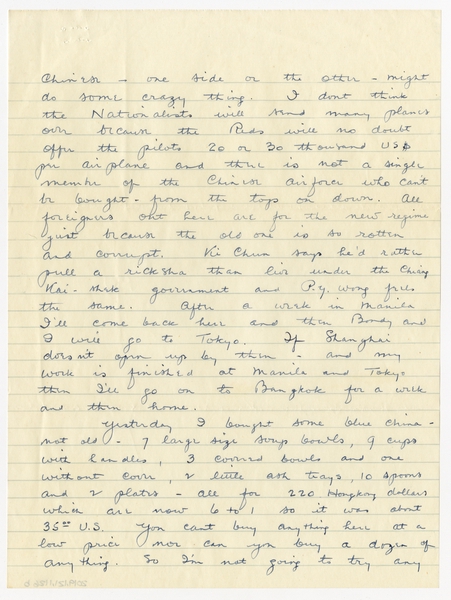 Chinese - one side or the other - might
do some crazy thing. I dont think
the Nationalists will send many planes
over because the Reds will no doubt
offer the pilots 20 or 30 thousand US$
per airplane and there is not a single
member of the Chinese airforce who can't
be bought - from the tops on down. All
foreigners out here are for the new regime
just because the old one is so rotten
and corrupt. Ki Chun says he'd rather
pull a ricksha than live under the Chiang
Kai-shek government and P.y. Wong feels
the same. After a week in Manila
I'll come back here and then Bondy and
I will go to Tokyo. If Shanghai
doesn't open up by then - and my
work is finished at Manila and Tokyo
then I'll go on to Bangkok for a week
and then home.
Yesterday I bought some blue china -
not old - 7 large size soup bowls, 9 cups
with handles, 3 covered bowls and one
without cover, 2 little ash trays, 10 spoons
and 2 plates - all for 220 Hongkong dollars
which are now 6 to 1 so it was about
35⁰⁰ U.S. You can't buy anything here at a
low price nor can you buy a dozen of
anything. So I'm not going to try any